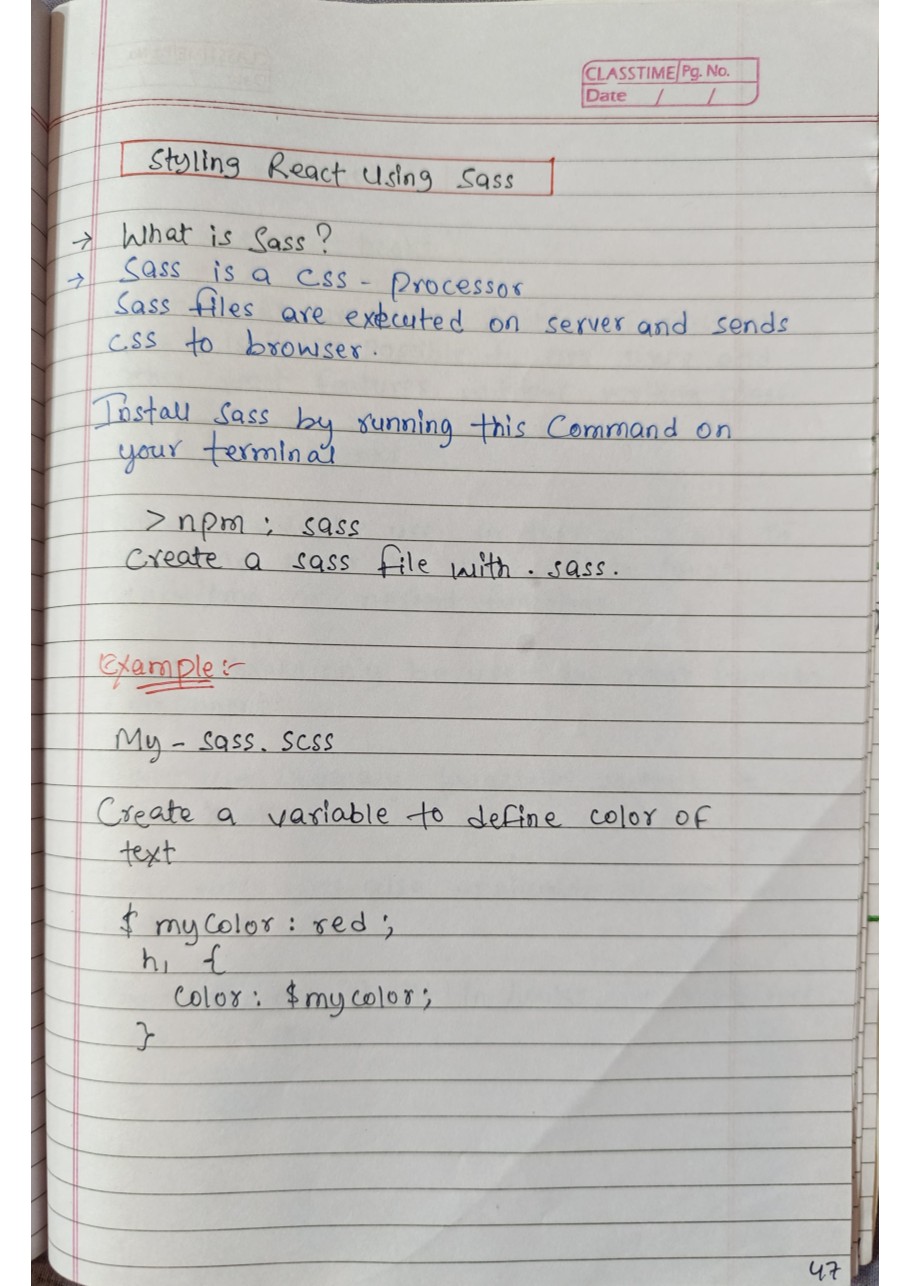 CLASSTIME Pg. No.
Date / /
Styling React Using Sass
→ What is Sass?
→ Sass is a css - processor
Sass files are executed on server and sends
css to browser.
Install Sass by running this Command on
your terminal
> npm i sass
Create a sass file with . sass.
Example:-
My - sass. scss
Create a variable to define color of
text
$ myColor : red ;
h1 {
color: $mycolor;
}
47